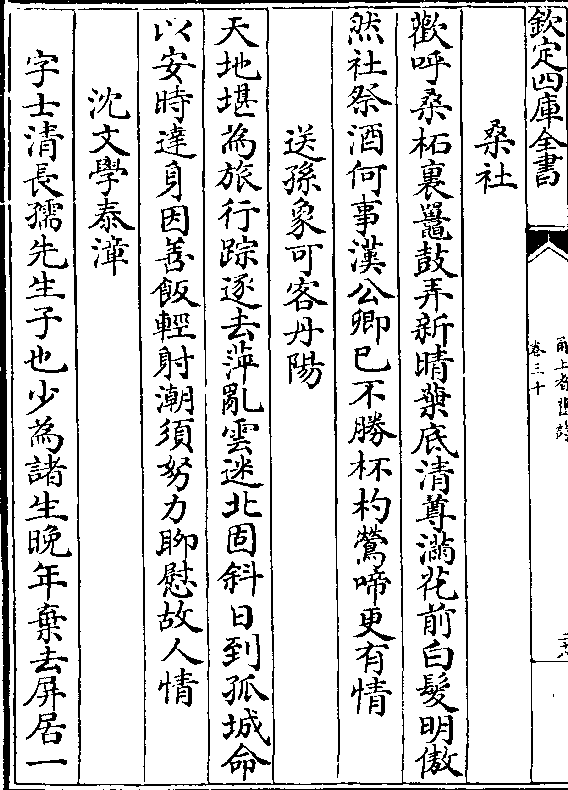 欽定四庫全書
卷三十
桑社
歡呼桑柘裏鼉鼓弄新晴葉底清尊滿花前白髮明傲
然社祭酒何事漢公卿已不勝杯杓鶯啼更有情
送孫象可客丹陽
天地堪為旅行踪逐去萍亂雲迷北固斜日到孤城命
以安時達身因善飯輕射潮須努力聊慰故人情
沈文學泰漳
字士清長孺先生子也少為諸生晚年棄去屏居一